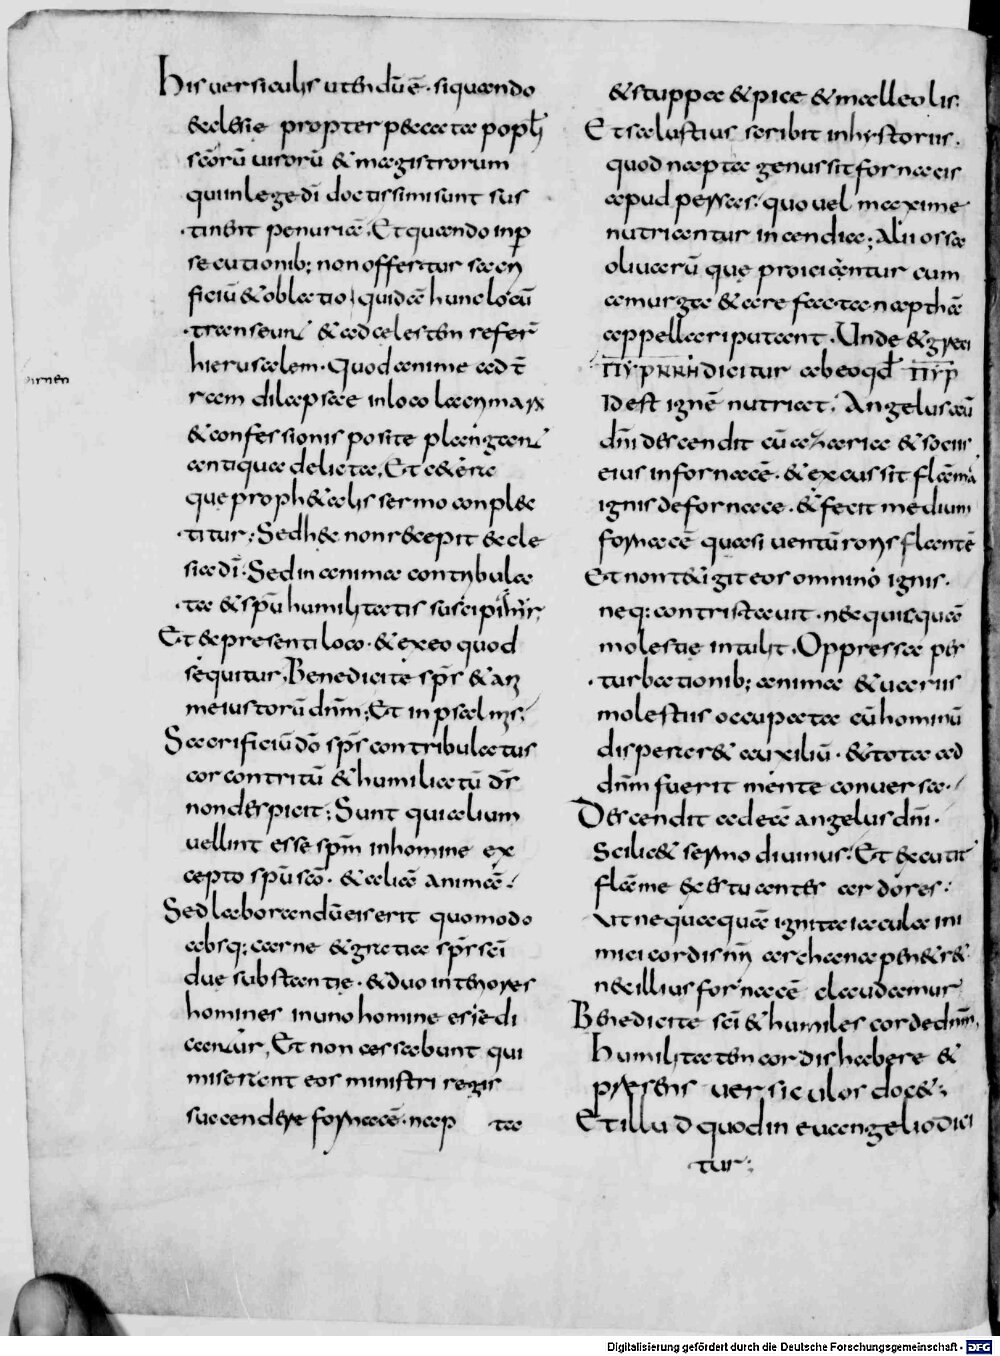 His versiculis utendū ē · si quando
& eclesie propter peccata popl'i
scōrū uirorū & magistrorum
qui in lege dī doctissimi sunt sus
tinent penuriā. Et quando in p
secutionib; non offertur sacri
ficiū & oblatio, quidā hunc locū
transeunt & ad celestem refer
hierusalem. Quod anime ad t
ram dilapsae in loco lacrymarū
& confessionis posite plangant
antiqua delicta. Et cetera
que prophetalis sermo conplec
titur; Sed hec non recepit eccle
sia dī. Sed in anima contribula
ta & spū humilitatis suscipi
Et de presenti loco · & ex eo quod
sequitur, Benedicite sps & an
me iustorū dnm; Et in psalmis;
Sacrificiū dō sps contribulatus
cor contritū & humiliatū ds
non despicit; Sunt qui alium
uellint esse spm in homine ex
cepto spū scō · & aliā animā.
Sed laborandū eis erit quomodo
absq; carne & gratia sps scī
due substantie · & duo interiores
homines in uno homine esse di
cantur, Et non cessabunt qui
miserant eos ministri regis
succendere fornacē · nap ta
& stuppa & pice & malleolis.
Et salustius scribit in hystoriis.
quod napta genus sit fornacis
apud persas. quo uel maxime
nutriantur incendia; Alii ossa
oliuarū que proiciuntur cum
amurga & arefacta napthā
appellari putant. Unde & greci
ΠΥΡΚΚΗ dicitur ab eo qd ΠΥΡ
id est ignē nutriat. Angelus aū
dni descendit cū azaria & sociis
eius in fornacē · & excussit flāmā
ignis de fornace · & fecit medium
fornacē quasi uentū roris flantē
Et non tetigit eos omnino ignis.
neq; contristauit · nec quisquā
molestie intulit. Oppressa per
turbationib; anima & uariis
molestiis occupata cū hominū
disperer& auxiliū · & tota ad
dnm fuerit mente conuersa.
Descendit ad eā angelus dni.
Scilic& sermo diuinus. Et excutit
flāme & estuantes ardores.
Ut nequaquā ignita iacula ini
mici cordis nri archana penetr&
nec illius fornacē claudamur
Benedicite sci & humiles corde dnm,
Humilitatem cordis habere &
presens uersiculos doc&;
Et illud quod in euangelio dici
tur;
irnen
Digitalisierung gefördert durch die Deutsche Forschungsgemeinschaft - DFG